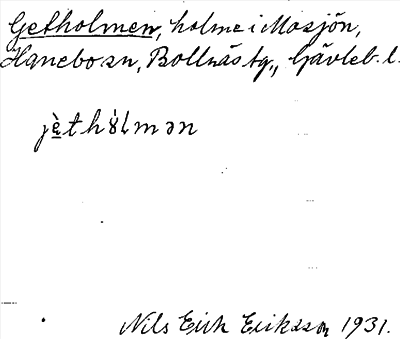 Getholmen, holme i Mosjön,
Hanebo sn, Bollnäs tg., Gävleb. l.
jèthól̥mən
Nils Erik Eriksson 1931.